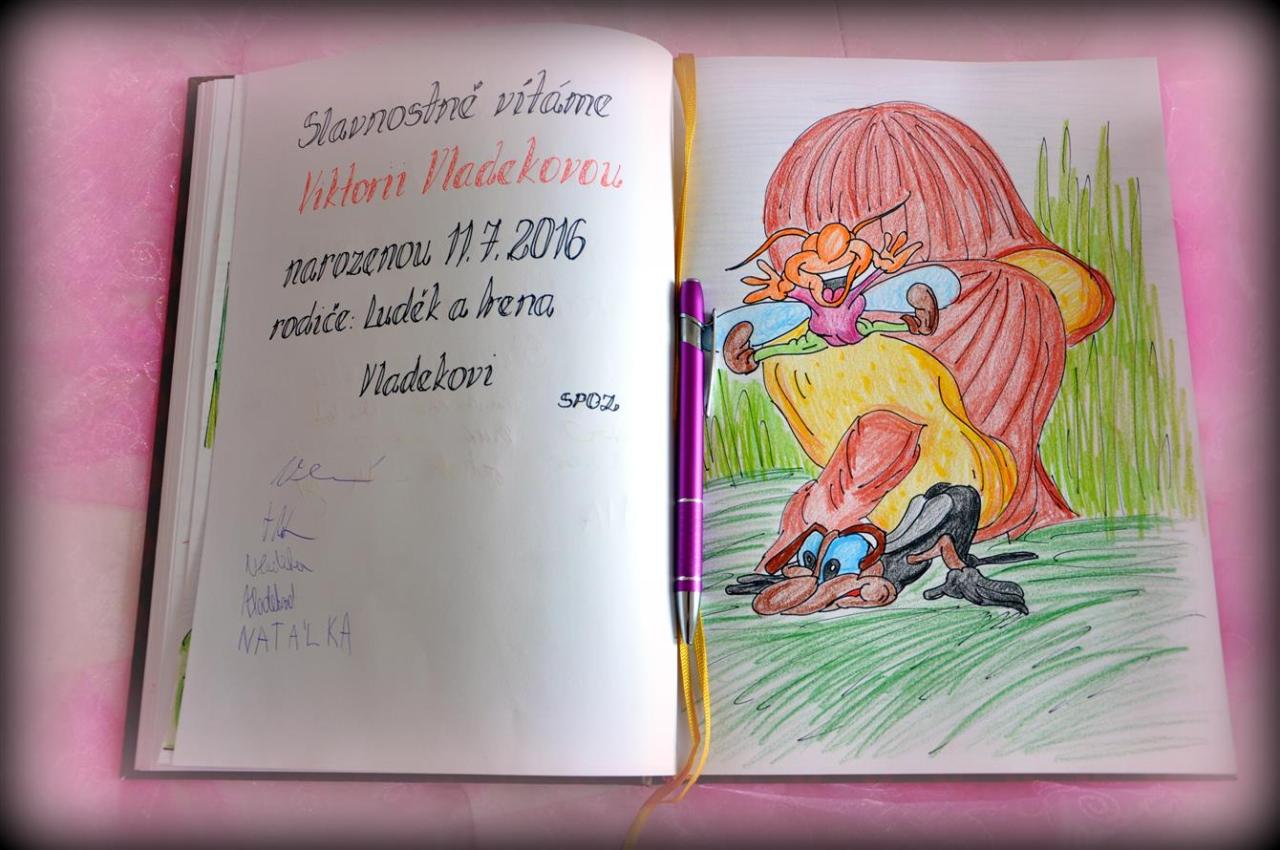 Slavnostně vítáme
Viktorii Vladekovou
narozenou 11.7.2016
rodiče: Luděk a Irena
Vladekovi
SPOZ
NATÁLKA